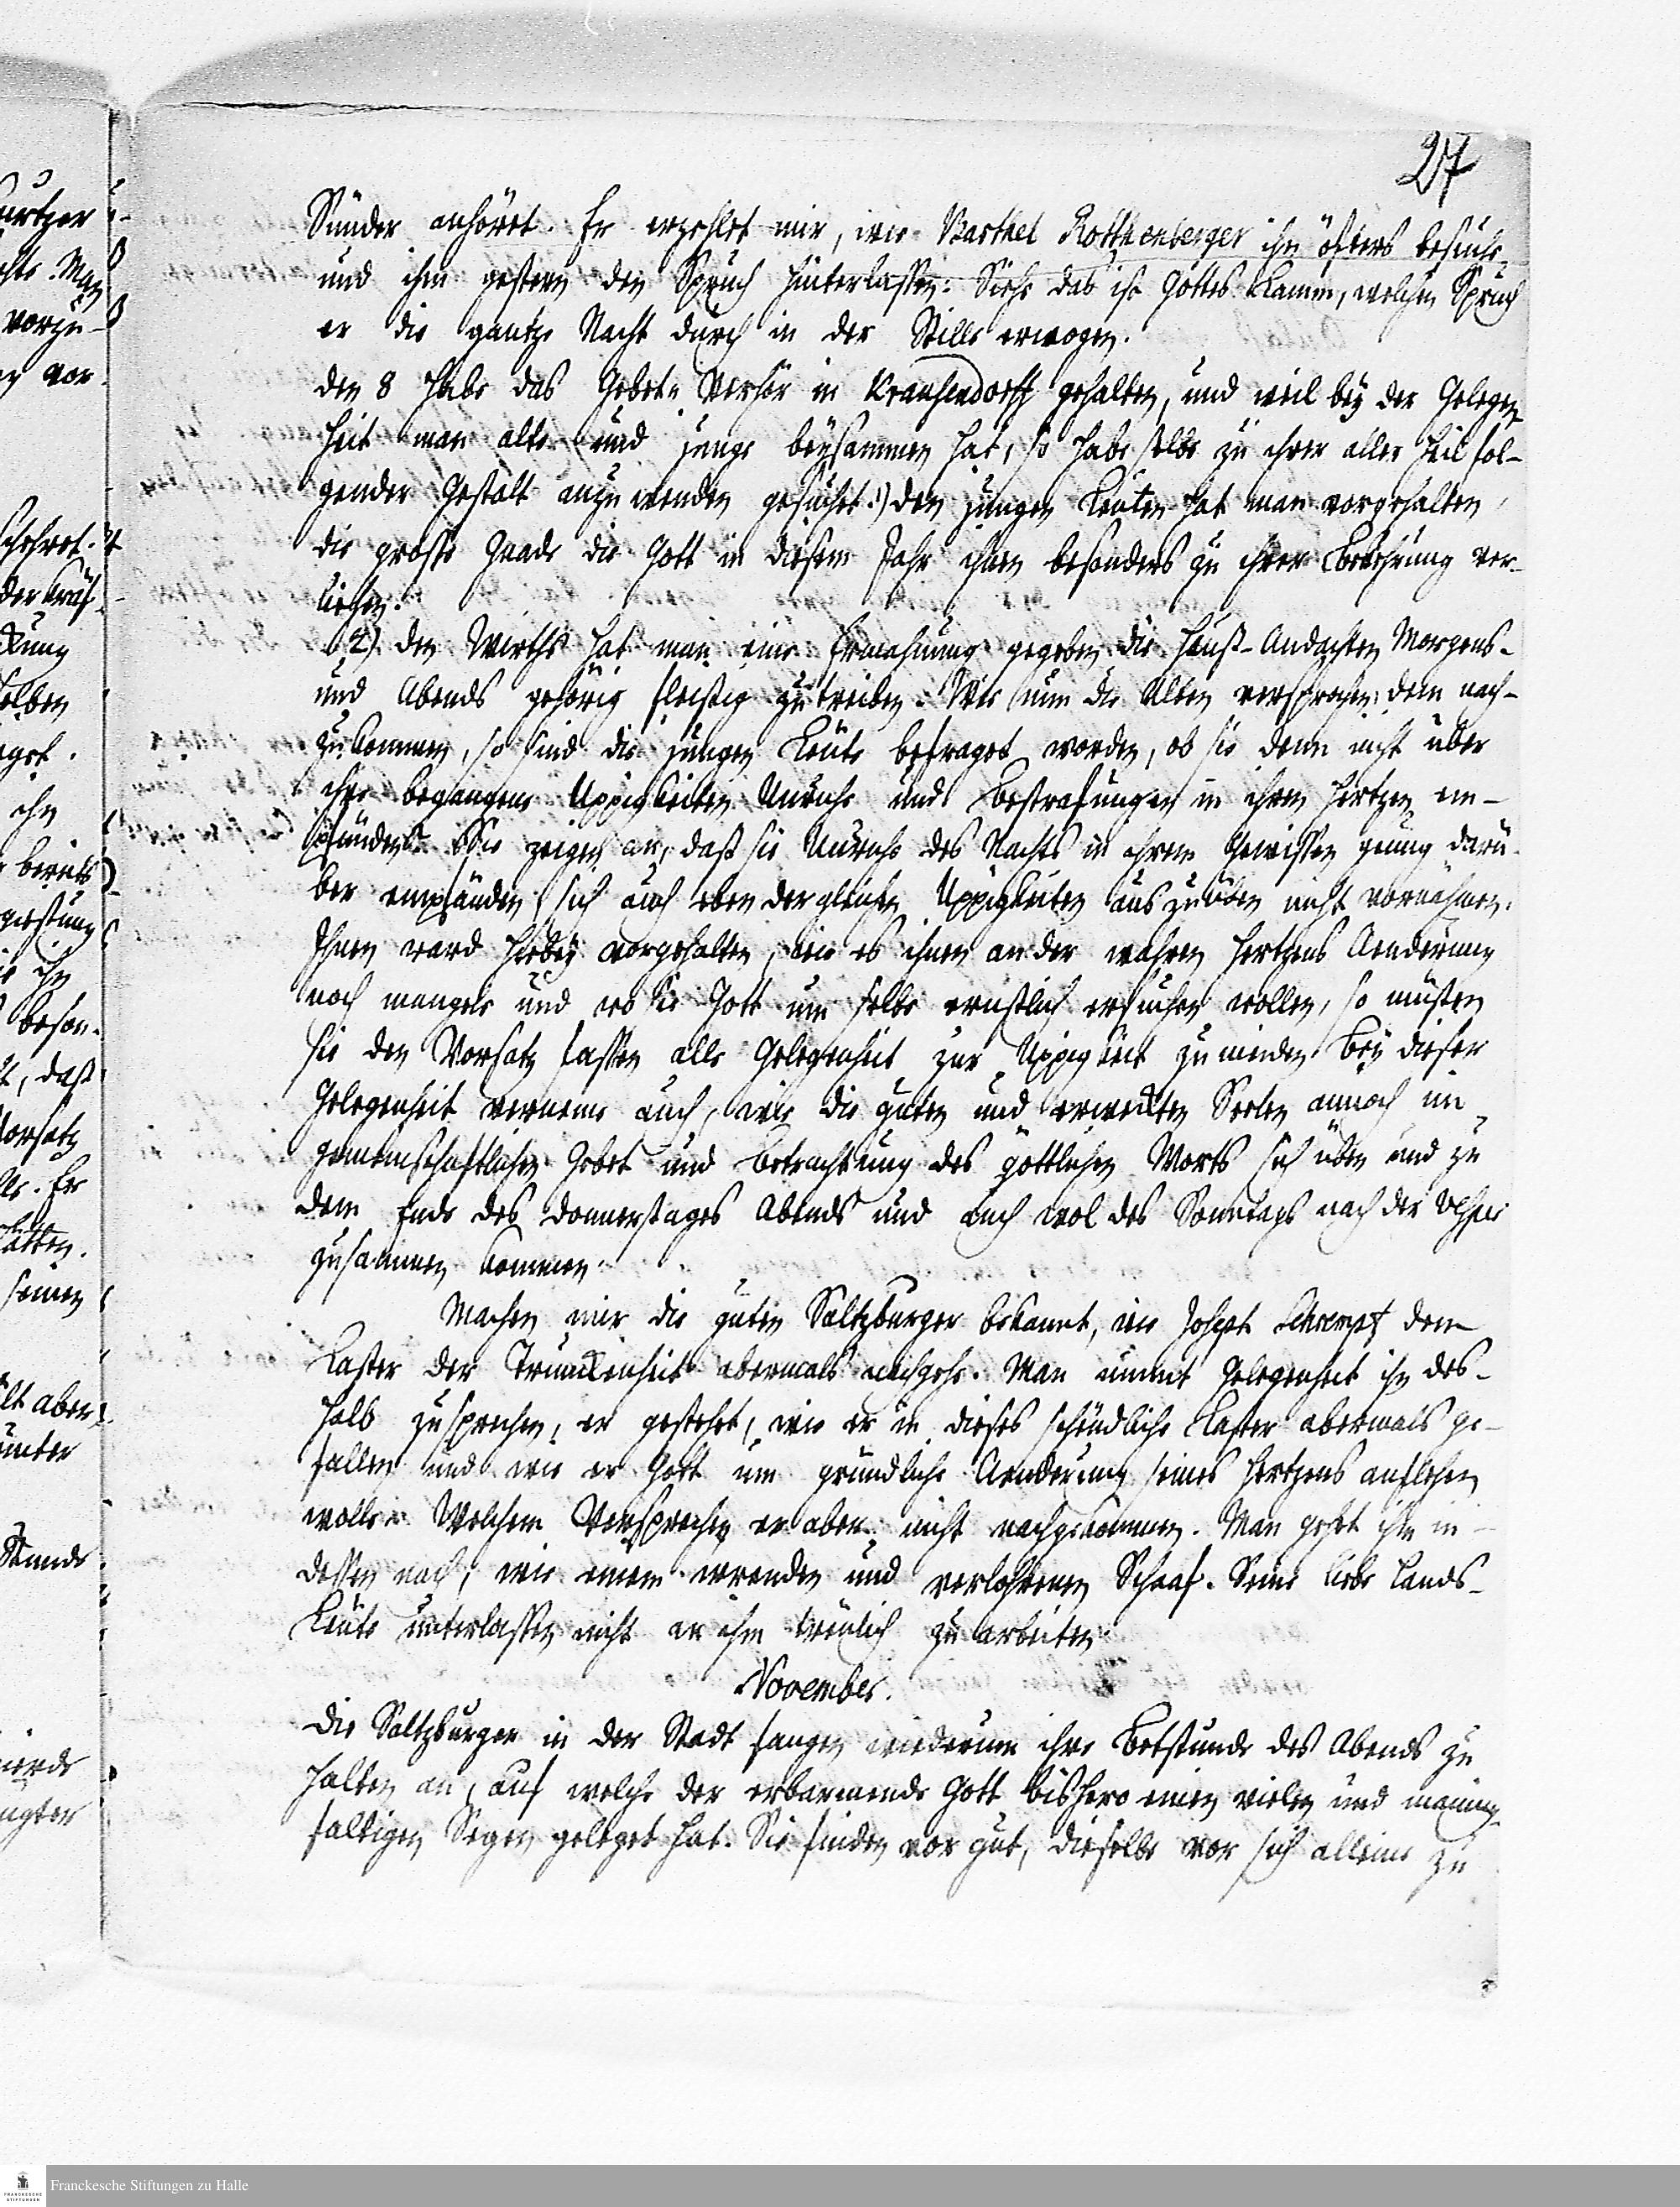 27
Sünder anhöret. Er erzehlet mir, wie Barthel Rotthenberger ihn öfters besuche,
und ihm gestern den Spruch hinterlassen: Siehe das ist Gottes Lamm, welchen Spruch
er die gantze Nacht durch in der Stille erwogen.
den 8 habe das Gebets Verhör in Krausendorff gehalten, und weil bey der Gelegen
heit man alte und junge beysammen hat, so habe selbe zu ihrer aller Heil fol-
gender Gestalt anzuwenden gesuchet. 1) den jungen Leuten hat man vorgehalten,
die grosse Gnade die Gott in diesem Jahr ihnen besonders zu ihrer Bekehrung ver-
liehen.
2). den Wirths hat man eine Ermahnung gegeben die Hauß-Andachten Morgens-
und Abends gehörig fleissig zu treiben. Wie nun die Alten versprochen dem nach-
zukommen, so sind die jungen Leute befraget worden, ob sie denn nicht über
ihre begangene Uppigkeiten Unruhe und Bestrafungen in ihren Hertzen em-
pfünden. Sie zeigen an, daß sie Unruhe des Nachts in ihrem Gewissen genung darü-
ber empfänden, sich auch eben dergleichen Uppigkeiten auszuüben nicht vornähmen.
Ihnen ward hirbey vorgehalten, wie es ihnen an der wahren Hertzens Aenderung
noch mangele und wo sie Gott um selbe ernstlich ersuchen wollen, so müsten
sie den Vorsatz fassen alle Gelegenheit zur Uppigkeit zu meiden. Bey dieser
Gelegenheit verneme auch, wie die guten und erweckten Seelen annoch im
gemeinschaftlichen Gebet und Betrachtung des göttlichen Worts sich üben und zu
dem Ende des Donnerstages Abends und auch wol des Sonntags nach der Vesper
zusammen kommen.
Machen mir die guten Saltzburger bekannt, wie Joseph Schrempf dem
Laster der Trunckenheit abermals nachgehe. Man nimmt Gelegenheit ihn des-
halb zu sprechen, er gestehet, wie er in dieses schändliche Laster abermals ge-
fallen und wie er Gott um gründliche Aenderung seines Hertzens anflehen
wolle. Welchem Versprechen er aber nicht nachgekommen. Man gehet ihm in-
dessen nach, wie einem irrenden und verlohrnen Schaaf. Seine liebe Lands-
Leute unterlassen nicht an ihm treulich zu arbeiten.
November.
Die Saltzburger in der Stadt fangen wiederum ihre Betstunde des Abends zu
halten an, auf welche der erbarmende Gott bishero einen vielen und mannig-
faltigen Segen geleget hat. Sie finden vor gut, dieselbe vor sich alleine zu
Franckesche Stiftungen zu Halle